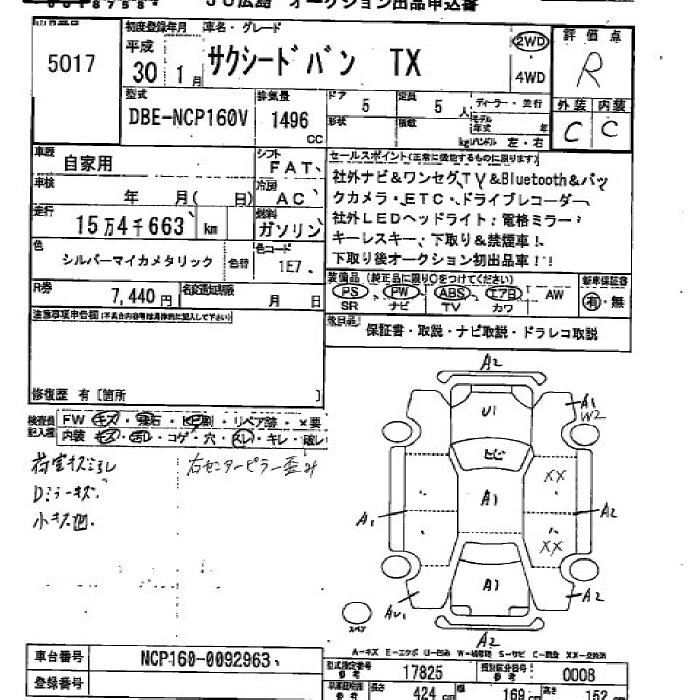 JU広島 オークション出品申込書
5017
初度登録年月
平成
30 1月
車名・グレード
サクシードバン TX
2WD
4WD
評価点
R
型式
DBE-NCP160V
排気量
1496
CC
ドア
5
定員
5 人
ディーラー・並行
形状
積載
kg
モデル
年式
年
ハンドル 左・右
外装 内装
C C
車歴
自家用
シフト
FAT
セールスポイント(正常に機能するものに限ります)
車検
年 月( 日)
冷房
AC
社外ナビ&ワンセグTV&Bluetooth&バッ
クカメラ・ETC、ドライブレコーダー
社外LEDヘッドライト・電格ミラー
キーレスキー、下取り&禁煙車!
下取り後オークション初出品車!!
走行
15万4千663 km
燃料
ガソリン
色
シルバーマイカメタリック
色替
色コード
1E7
装備品(純正品に限り○をつけてください)
PS PW ABS エアB AW
SR ナビ TV カワ
新車保証書
有・無
R券
7,440円
名変通知期限
月 日
後日品
保証書・取説・ナビ取説・ドラレコ取説
注意事項申告欄(不具合内容等は具体的に記入して下さい)
修復歴 有[箇所 ]
検査員
記入欄
FW キズ・飛石・ヒビ割・リペア跡・×要
内装 キズ・汚レ・コゲ・穴・スレ・キレ・破レ
荷室キズ汚レ
Dミラーキズ
小キズ凹
右センターピラー歪み
A2
U1
A1
W2
ヒビ
XX
A1
A1
A2
XX
A1
AU1
A2
スペア
A2
A-キズ E-エクボ U-凹み W-補修跡 S-サビ C-腐食 XX-交換済
車台番号
NCP160-0092963
登録番号
型式指定番号
参考
17825
類別区分番号
参考
0008
長さ
424 cm
幅
169 cm
高さ
152 cm